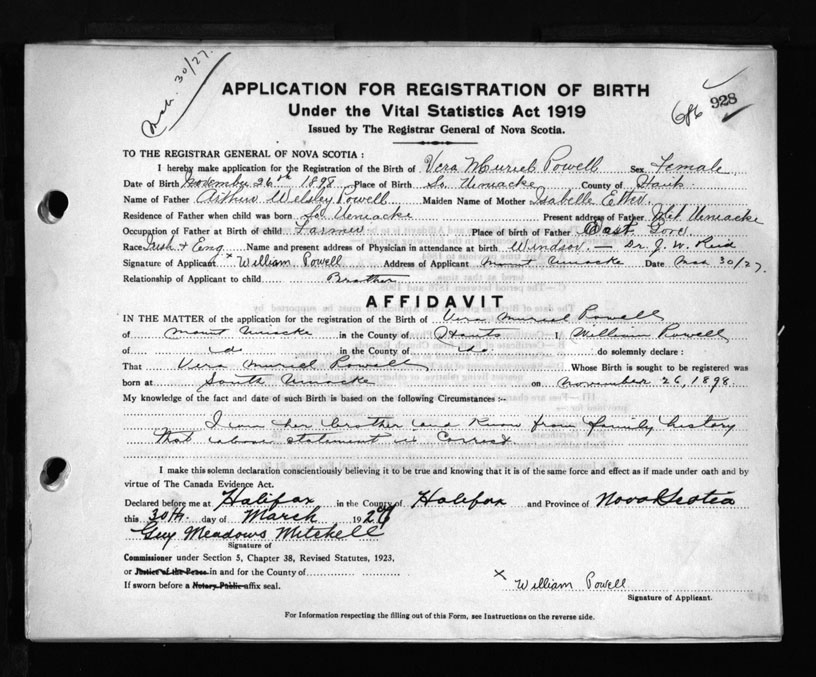 Mch. 30/27.
APPLICATION FOR REGISTRATION OF BIRTH
Under the Vital Statistics Act 1919
Issued by The Registrar General of Nova Scotia.
686 928
TO THE REGISTRAR GENERAL OF NOVA SCOTIA :
I hereby make application for the Registration of the Birth of Vera Muriel Powell Sex Female
Date of Birth November 26th 1898 Place of Birth So. Uniacke County of Hants
Name of Father Arthur Welsley Powell Maiden Name of Mother Isabelle
Residence of Father when child was born So. Uniacke Present address of Father Mt. Uniacke
Occupation of Father at Birth of child Farmer Place of birth of Father East Gore
Race Irish + Eng Name and present address of Physician in attendance at birth Windsor — Dr. J. W. Reid
Signature of Applicant x William Powell Address of Applicant Mount Uniacke Date Mch 30/27.
Relationship of Applicant to child Brother
AFFIDAVIT
IN THE MATTER of the application for the registration of the Birth of Vera Muriel Powell
of Mount Uniacke in the County of Hants I, William Powell
of do in the County of do do solemnly declare :
That Vera Muriel Powell Whose Birth is sought to be registered was
born at South Uniacke on November 26, 1898.
My knowledge of the fact and date of such Birth is based on the following Circumstances :-
I am her brother and know from family history
that above statement is correct
I make this solemn declaration conscientiously believing it to be true and knowing that it is of the same force and effect as if made under oath and by
virtue of The Canada Evidence Act.
Declared before me at Halifax in the County of Halifax and Province of Nova Scotia
this 30th day of March 1927
Guy Meadows Mitchell
Signature of
Commissioner under Section 5, Chapter 38, Revised Statutes, 1923.
or Justice of the Peace in and for the County of
If sworn before a Notary Public affix seal.
x William Powell
Signature of Applicant.
For Information respecting the filling out of this Form, see Instructions on the reverse side.